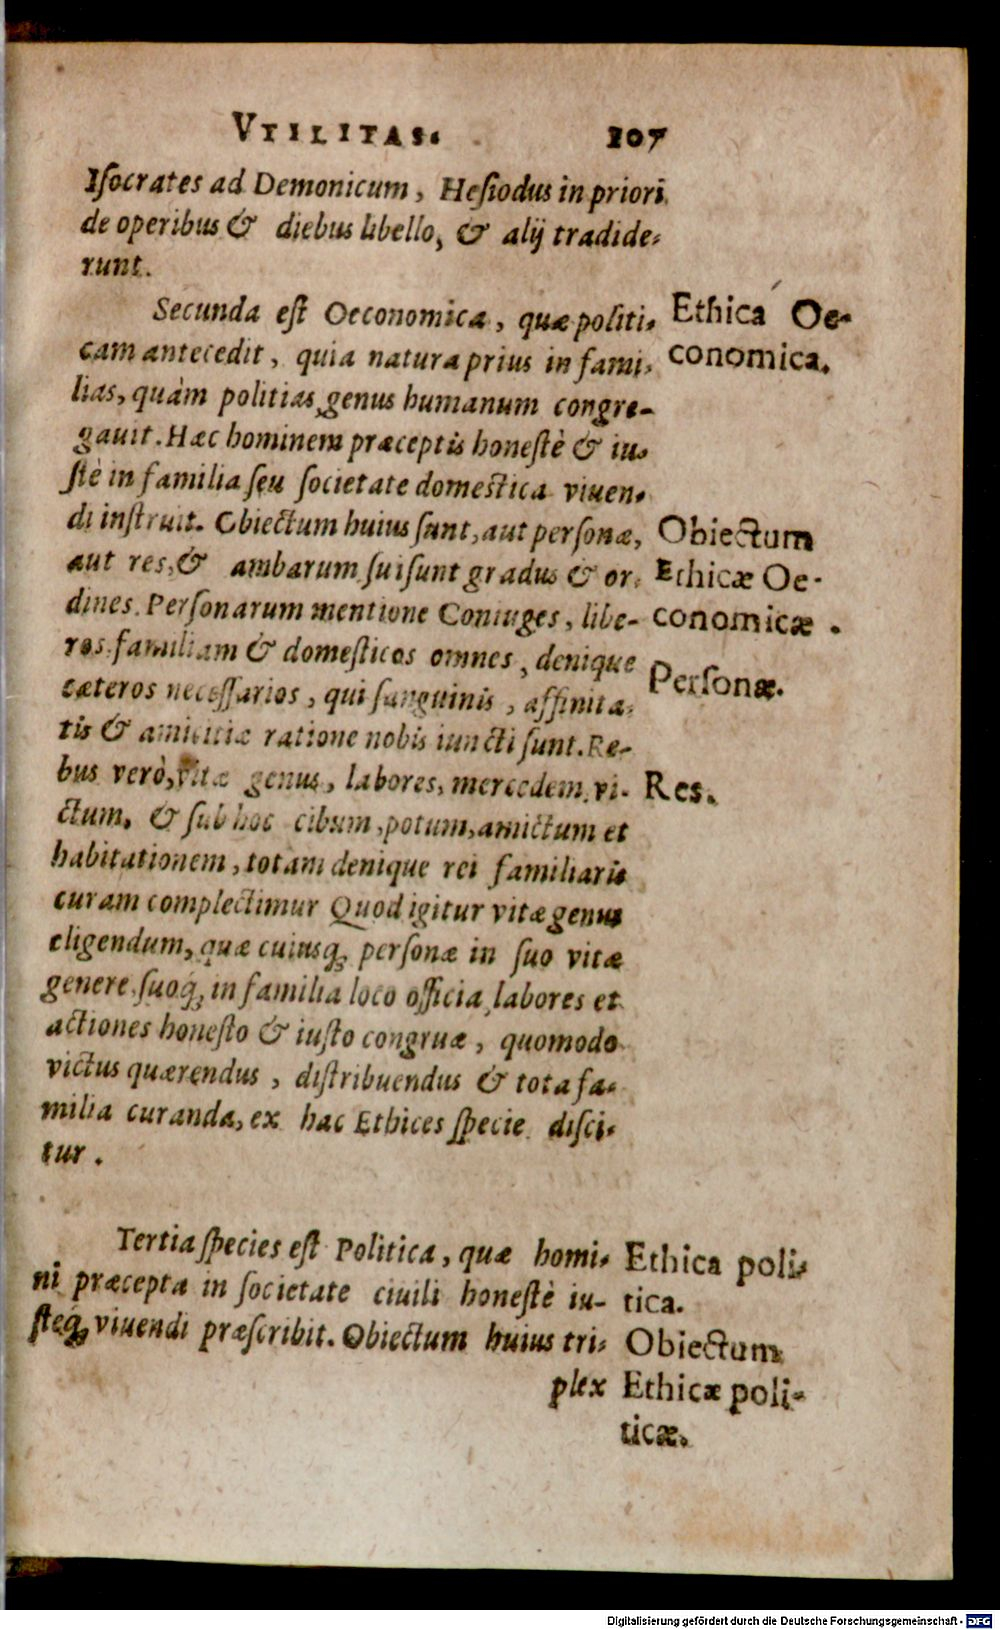 VTILITAS. 107
Iſocrates ad Demonicum, Heſiodus in priori
de operibus & diebus libello, & alij tradide-
runt.
Secunda eſt Oeconomica, quæ politi-
cam antecedit, quia natura prius in fami-
lias, quàm politias genus humanum congre-
gauit. Hæc hominem præceptis honeſtè & iu-
ſtè in familia ſeu ſocietate domeſtica viuen-
di inſtruit. Obiectum huius ſunt, aut perſonæ,
aut res, & ambarum ſui ſunt gradus & or-
dines. Perſonarum mentione Coniuges, libe-
ros familiam & domeſticos omnes, denique
cæteros neceſſarios, qui ſanguinis, affinita-
tis & amicitiæ ratione nobis iuncti ſunt. Re-
bus verò, vitæ genus, labores, mercedem, vi-
ctum, & ſub hoc cibum, potum, amictum et
habitationem, totam denique rei familiaris
curam complectimur Quod igitur vitæ genus
eligendum, quæ cuiusq; perſonæ in ſuo vitæ
genere, ſuoq; in familia loco officia, labores et
actiones honeſto & iuſto congruæ, quomodo
victus quærendus, diſtribuendus & tota fa-
milia curanda, ex hac Ethices ſpecie diſci-
tur.
Tertia ſpecies eſt Politica, quæ homi-
ni præcepta in ſocietate ciuili honeſtè iu-
ſteq; viuendi præſcribit. Obiectum huius tri-
plex
Ethica Oe-
conomica.
Obiectum
Ethicæ Oe-
conomicæ.
Perſonæ.
Res.
Ethica poli-
tica.
Obiectum
Ethicæ poli-
ticæ.
Digitalisierung gefördert durch die Deutsche Forschungsgemeinschaft - DFG